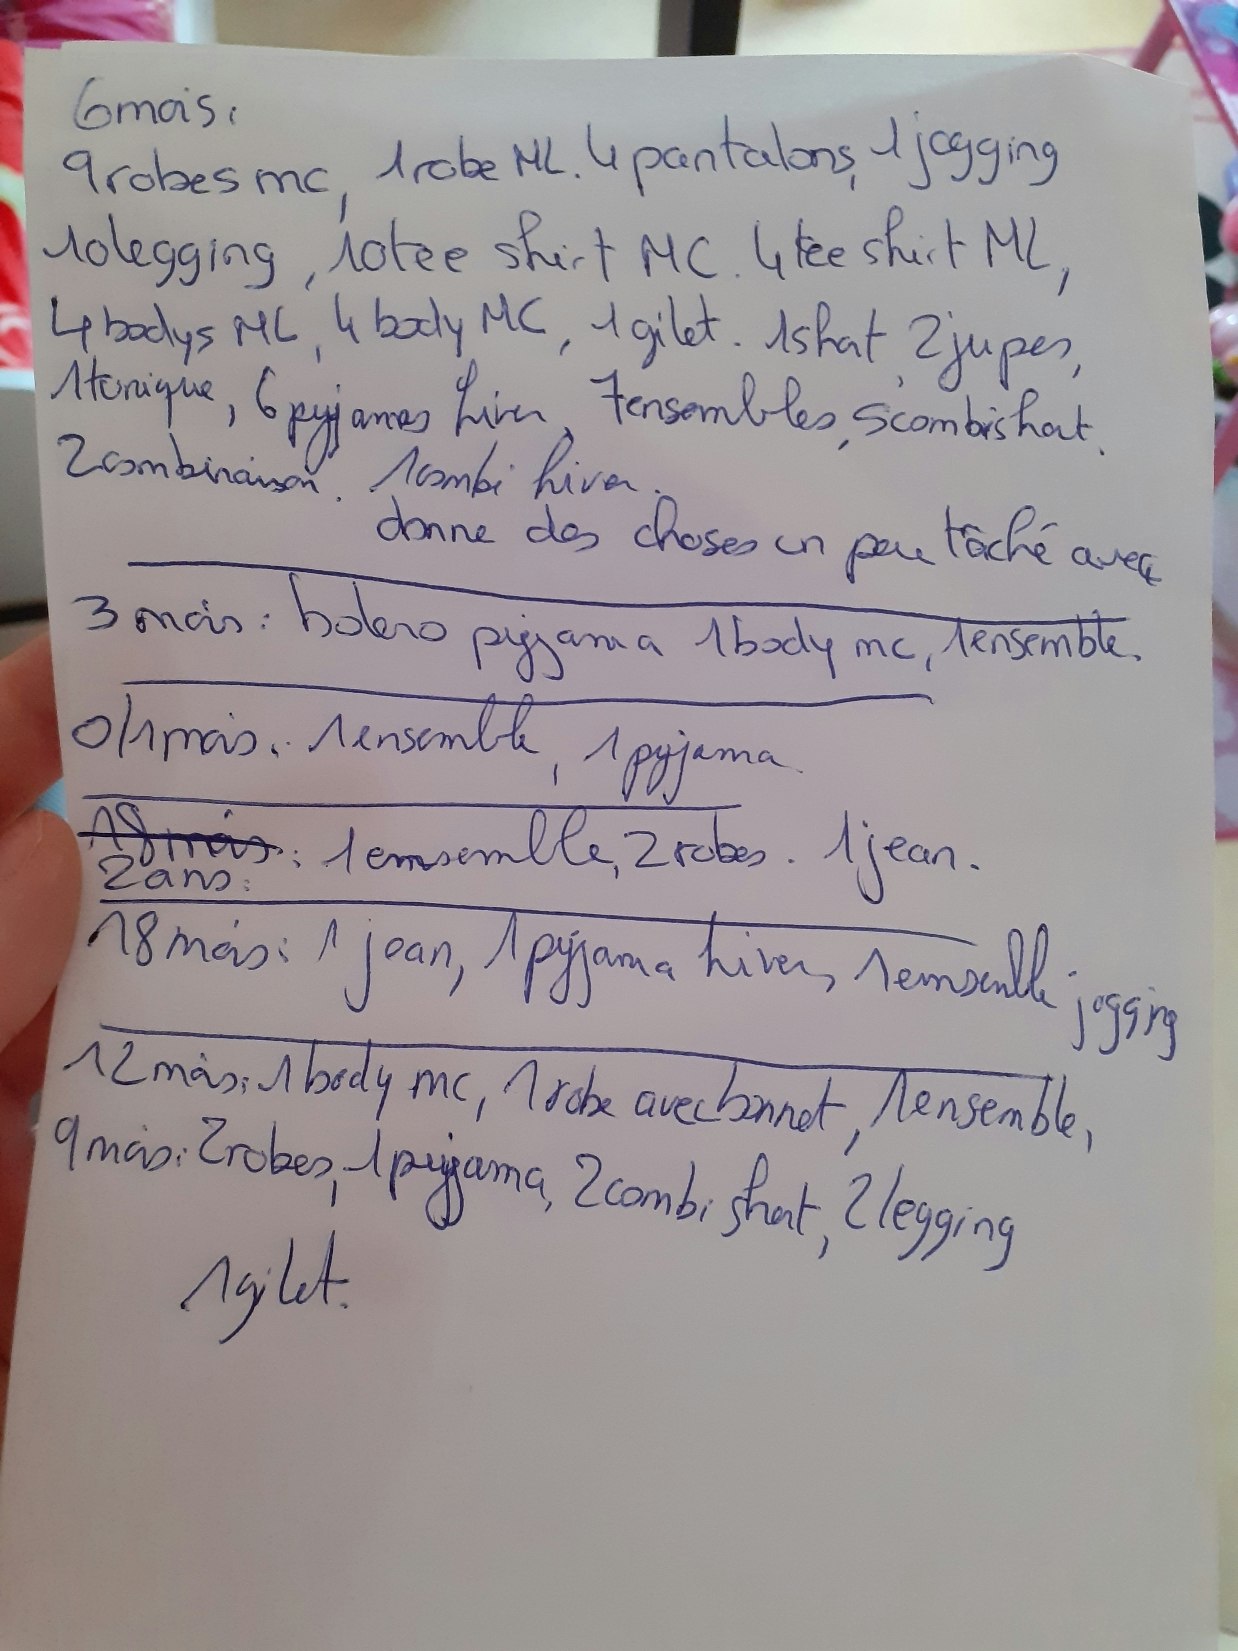 6mois:
9robes mc, 1robe ML. 4 pantalons, 1 jogging
10legging, 10tee shirt MC. 4tee shirt ML,
4 bodys ML, 4 body MC, 1gilet. 1shat, 2jupes,
1tunique, 6 pyjamas hiver, 7ensembles, 5combishort.
2combinaison. 1combi hiver.
donne des choses un peu tâché avec
3 mois: bolero pyjama 1body mc, 1ensemble.
0/1mois: 1ensemble, 1pyjama.
18mois: 1emsemble, 2robes. 1jean.
2ans:
18mois: 1 jean, 1pyjama hiver, 1emsemble jogging
12mois: 1body mc, 1robe avec bonnet, 1ensemble,
9mois: 2robes, 1pyjama, 2combi short, 2legging
1gilet.